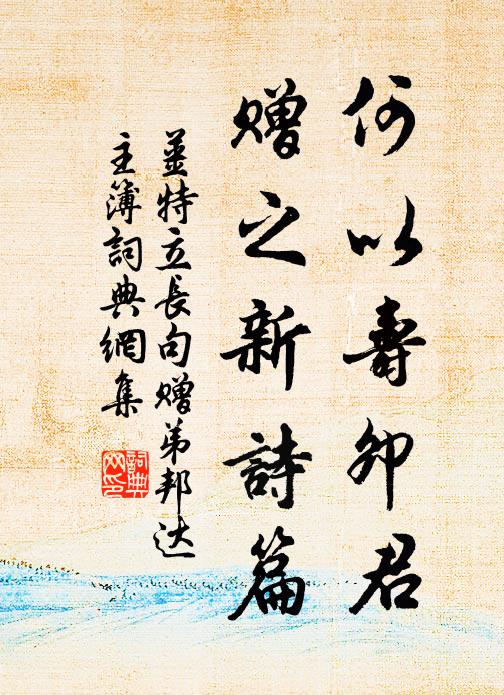 何以壽卯君
贈之新詩篇
薑特立長句贈弟邦达
主簿詞典網集
詞典网印